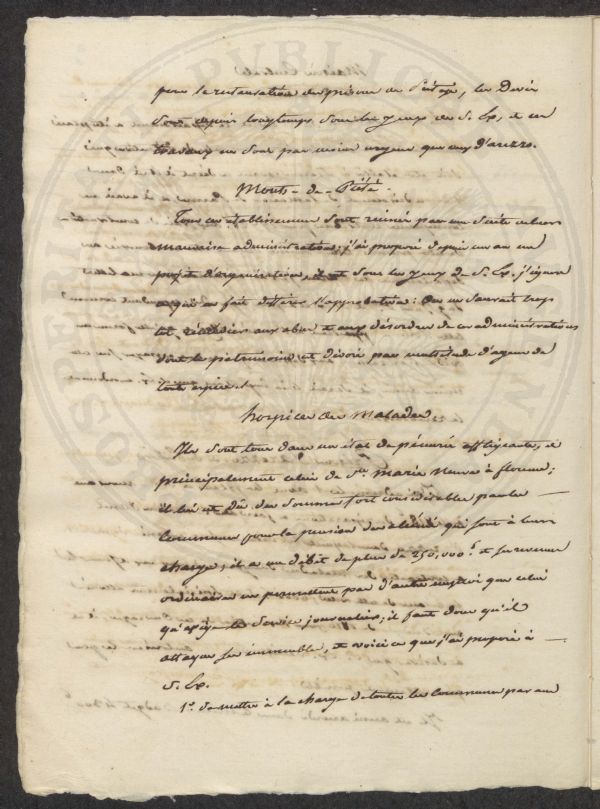 pour la restauration des prisons de Pistoja, les Devis
sont depuis longtemps sous les yeux de S. Ex, et ces
travaux ne sont pas moins urgens que ceux d'arezzo.
Monts-de-Piété.
Tous ces établissemens sont ruinés par une suite
mauvaise administration; j'ai proposé depuis un an un
projet d'organisation, il est sous les yeux de S. Ex. j'ignore
ce qui en fait différer l'approbation: On ne saurait trop
tôt, remédier aux abus et aux désordres de ces administrations
dont le patrimoine est dévoré par multitude d'agens de
toute espèce.
hospices des Malades
Ils sont tous dans un état de pénurie affligeante, et
principalement celui de Ste Marie Neuve à florence;
il lui est dû des Sommes fort considérables par les
Communes pour la pension des aliénés qui sont à leur
charge; il a un débet de plus de 250,000 f et ses revenus
ordinaires ne permettent pas d'autre emploi que celui
du Service journalier; il faut donc qu'il
attaque ses immeubles, et voici ce que j'ai proposé à
S. Ex.
1° de mettre à la charge de toutes les Communes par une